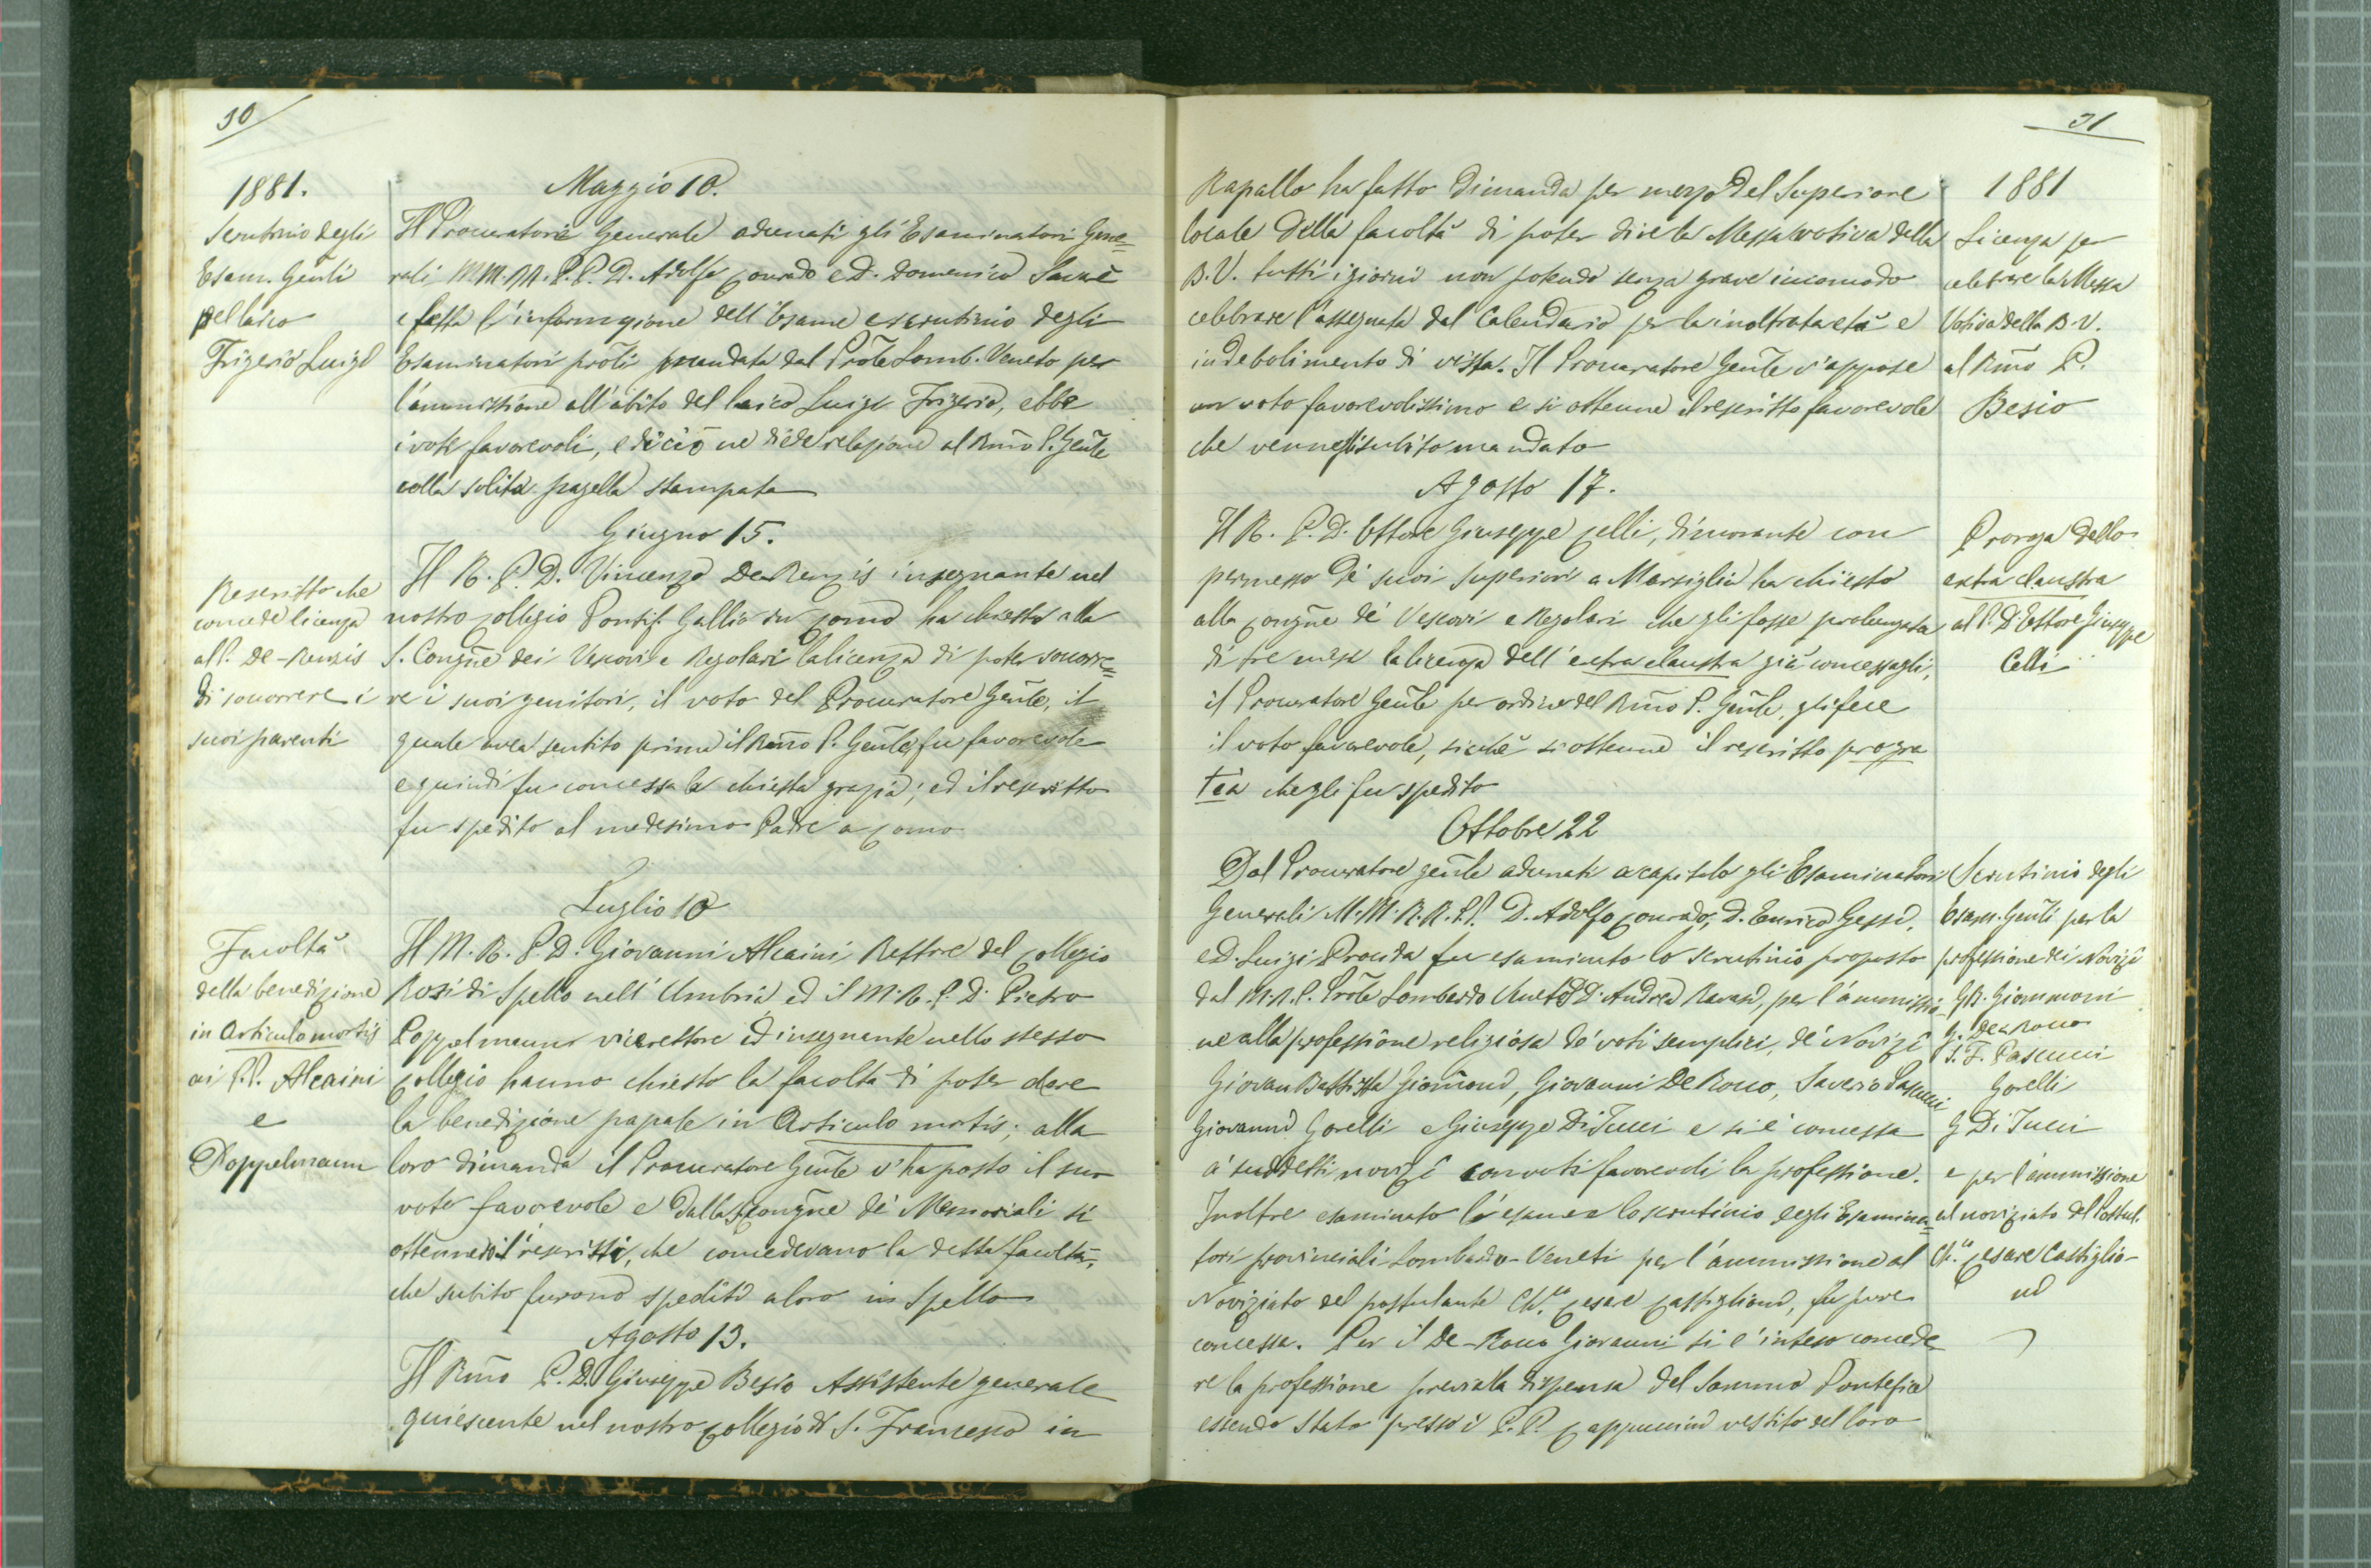 30
1881.
Scrutinio degli
Esam. Genli
pel laico
Frigerio Luigi
Maggio 10.
Il Procuratore Generale adunati gli Esaminatori Gene=
rali M.M.R.R. P.P. D. Adolfo Conrado e D. Domenico Savarè
e fatta l'informazione dell'Esame e scrutinio degli
Esaminatori prõli mandata dal Prõle Lomb. Veneto per
l'ammissione all'abito del laico Luigi Frigerio, ebbe
i voti favorevoli, e di ciò ne diede relazione al Rmo P. Genle
colla solita pagella stampata
Giugno 15.
Rescritto che
concede licenza
al P. De-Renzis
di soccorrere i
suoi parenti
Il R. P. D. Vincenzo De Renzis insegnante nel
nostro Collegio Pontif. Gallio in Como ha chiesto alla
S. Congne dei Vescovi e Regolari la licenza di poter soccorre=
re i suoi genitori, il voto del Procuratore Genle, il
quale avea sentito prima il Rmo P. Genle, fu favorevole
e quindi fu concessa la chiesta grazia; ed il rescritto
fu spedito al medesimo Padre a Como
Luglio 10
Facoltà
della benedizione
in Articulo mortis
ai P.P. Alcaini
e
Poppelmann
Il M. R. P. D. Giovanni Alcaini Rettore del Collegio
Rosi di Spello nell'Umbria ed il M. R. P. D. Pietro
Poppelmann vicerettore ed insegnante nello stesso
Collegio hanno chiesto la facoltà di poter dare
la benedizione papale in Articulo mortis; alla
loro dimanda il Procuratore Genle v'ha posto il suo
voto favorevole e dalla S. Congne de' Memoriali si
ottennero i rescritti, che concedevano la detta facoltà,
che subito furono spediti a loro in Spello
Agosto 13.
Il Rmo P. D. Giuseppe Besio Assistente generale
quiescente nel nostro Collegio di S. Francesco in
31
Rapallo ha fatto dimanda per mezzo del Superiore
locale della facoltà di poter dire la Messa votiva della
B. V. tutti i giorni non potendo senza grave incomodo
celebrare l'assegnata dal Calendario per la inoltrata età e
indebolimento di vista. Il Procuratore Genle v'appose
un voto favorevolissimo e si ottenne il rescritto favorevole
che venne gli subito mandato
1881
Licenza per
celebrare la Messa
Votiva della B. V.
al Rmo P.
Besio
Agosto 17.
Il R. P. D. Ettore Giuseppe Celli, dimorante con
permesso de' suoi Superiori a Marsiglia ha chiesto
alla Congne de' Vescovi e Regolari che gli fosse prolungata
di tre mesi la licenza dell'extra claustra già concessagli,
il Procuratore Genle per ordine del Rmo P. Genle, gli fece
il voto favorevole, sicchè si ottenne il rescritto pro gra
tia che gli fu spedito
Proroga dello
extra claustra
al P. D. Ettore Giuseppe
Celli
Ottobre 22
Dal Procuratore genle adunati a capitolo gli Esaminatori
Generali M.M.R.R. P.P. D. Adolfo Conrado, D. Enrico Gessi,
e D. Luigi Procida fu esaminato lo scrutinio proposto
dal M.R.P. Prõle Lombardo Veneto D. Andrea Ravasi, per l'ammissio-
ne alla professione religiosa de' voti semplici, de' Novizi
Giovan Battista Giomoni, Giovanni De Rocco, Saverio Pascucci
Giovanni Gorelli e Giuseppe Di Tucci e si è concessa
a' suddetti novizi con voti favorevoli la professione.
Inoltre esaminato l'esame e lo scrutinio degli Esamina=
tori provinciali Lombardo-Veneti per l'ammissione al
Noviziato del postulante Ch.co Cesare Castiglioni, fu pure
concessa. Per il De-Rocco Giovanni si è inteso concede
re la professione previa la dispensa del Sommo Pontefice
essendo stato presso i P.P. Cappuccini vestito del loro
Scrutinio degli
Esam. Genli per la
professione dei Novizi
G.B. Giommoni
G. De Rocco
S. F. Pascucci
Gorelli
G Di Tucci
e per l'ammissione
al noviziato del Postul.
Ch.co Cesare Castiglio-
ni